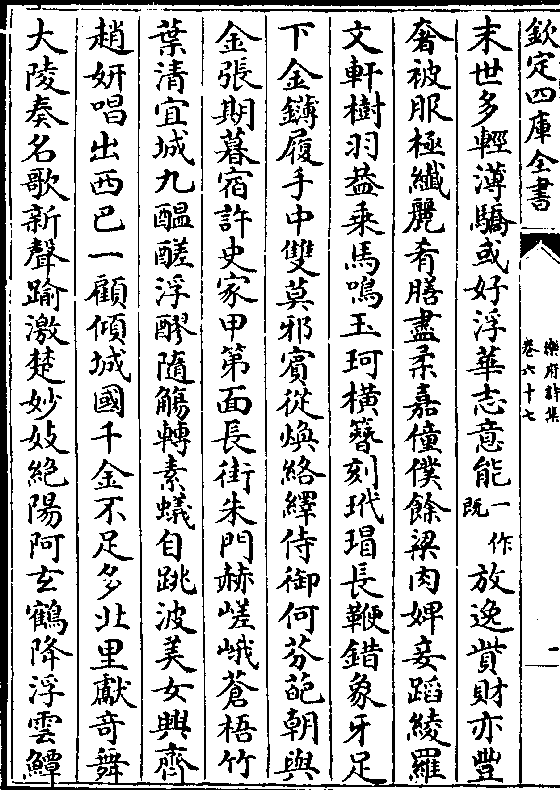 欽定四庫全書
樂府詩集
卷六十七
一
末世多輕薄驕或好浮華志意能一作既放逸貲財亦豐
奢被服極纖麗肴膳盡柔嘉僮僕餘粱肉婢妾蹈綾羅
文軒樹羽葢乘馬鳴玉珂橫簪刻玳瑁長鞭錯象牙足
下金鑮履手中雙莫邪賓從煥絡繹侍御何芬葩朝與
金張期暮宿許史家甲第面長街朱門赫嵯峨蒼梧竹
葉清宜城九醖醝浮醪隨觴轉素蟻自跳波美女興齊
趙妍唱出西巴一顧傾城國千金不足多北里獻奇舞
大陵奏名歌新聲踰激楚妙妓絕陽阿玄鶴降浮雲鱏